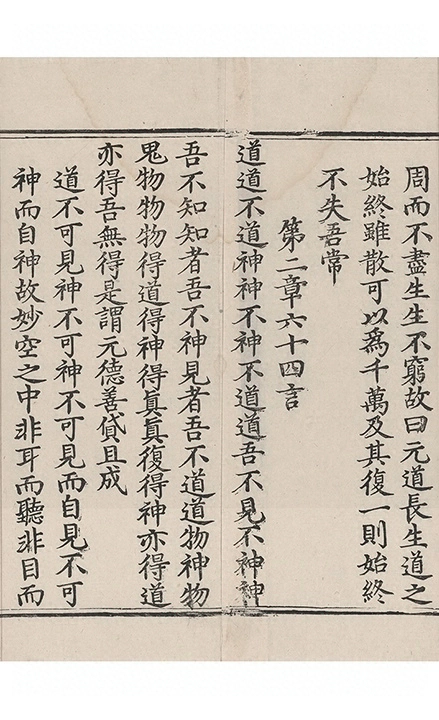 周而不盡生生不窮故曰元道長生道之
始終雖散可以爲千萬及其復一則始終
不失吾常
第二章六十四言
道道不道神神不神不道道吾不見不神神
吾不知知者吾不神見者吾不道道物神物
鬼物物物得道得神得眞眞復得神亦得道
亦得吾無得是謂元德善貸且成
道不可見神不可神不可見而自見不可
神而自神故妙空之中非耳而聽非目而